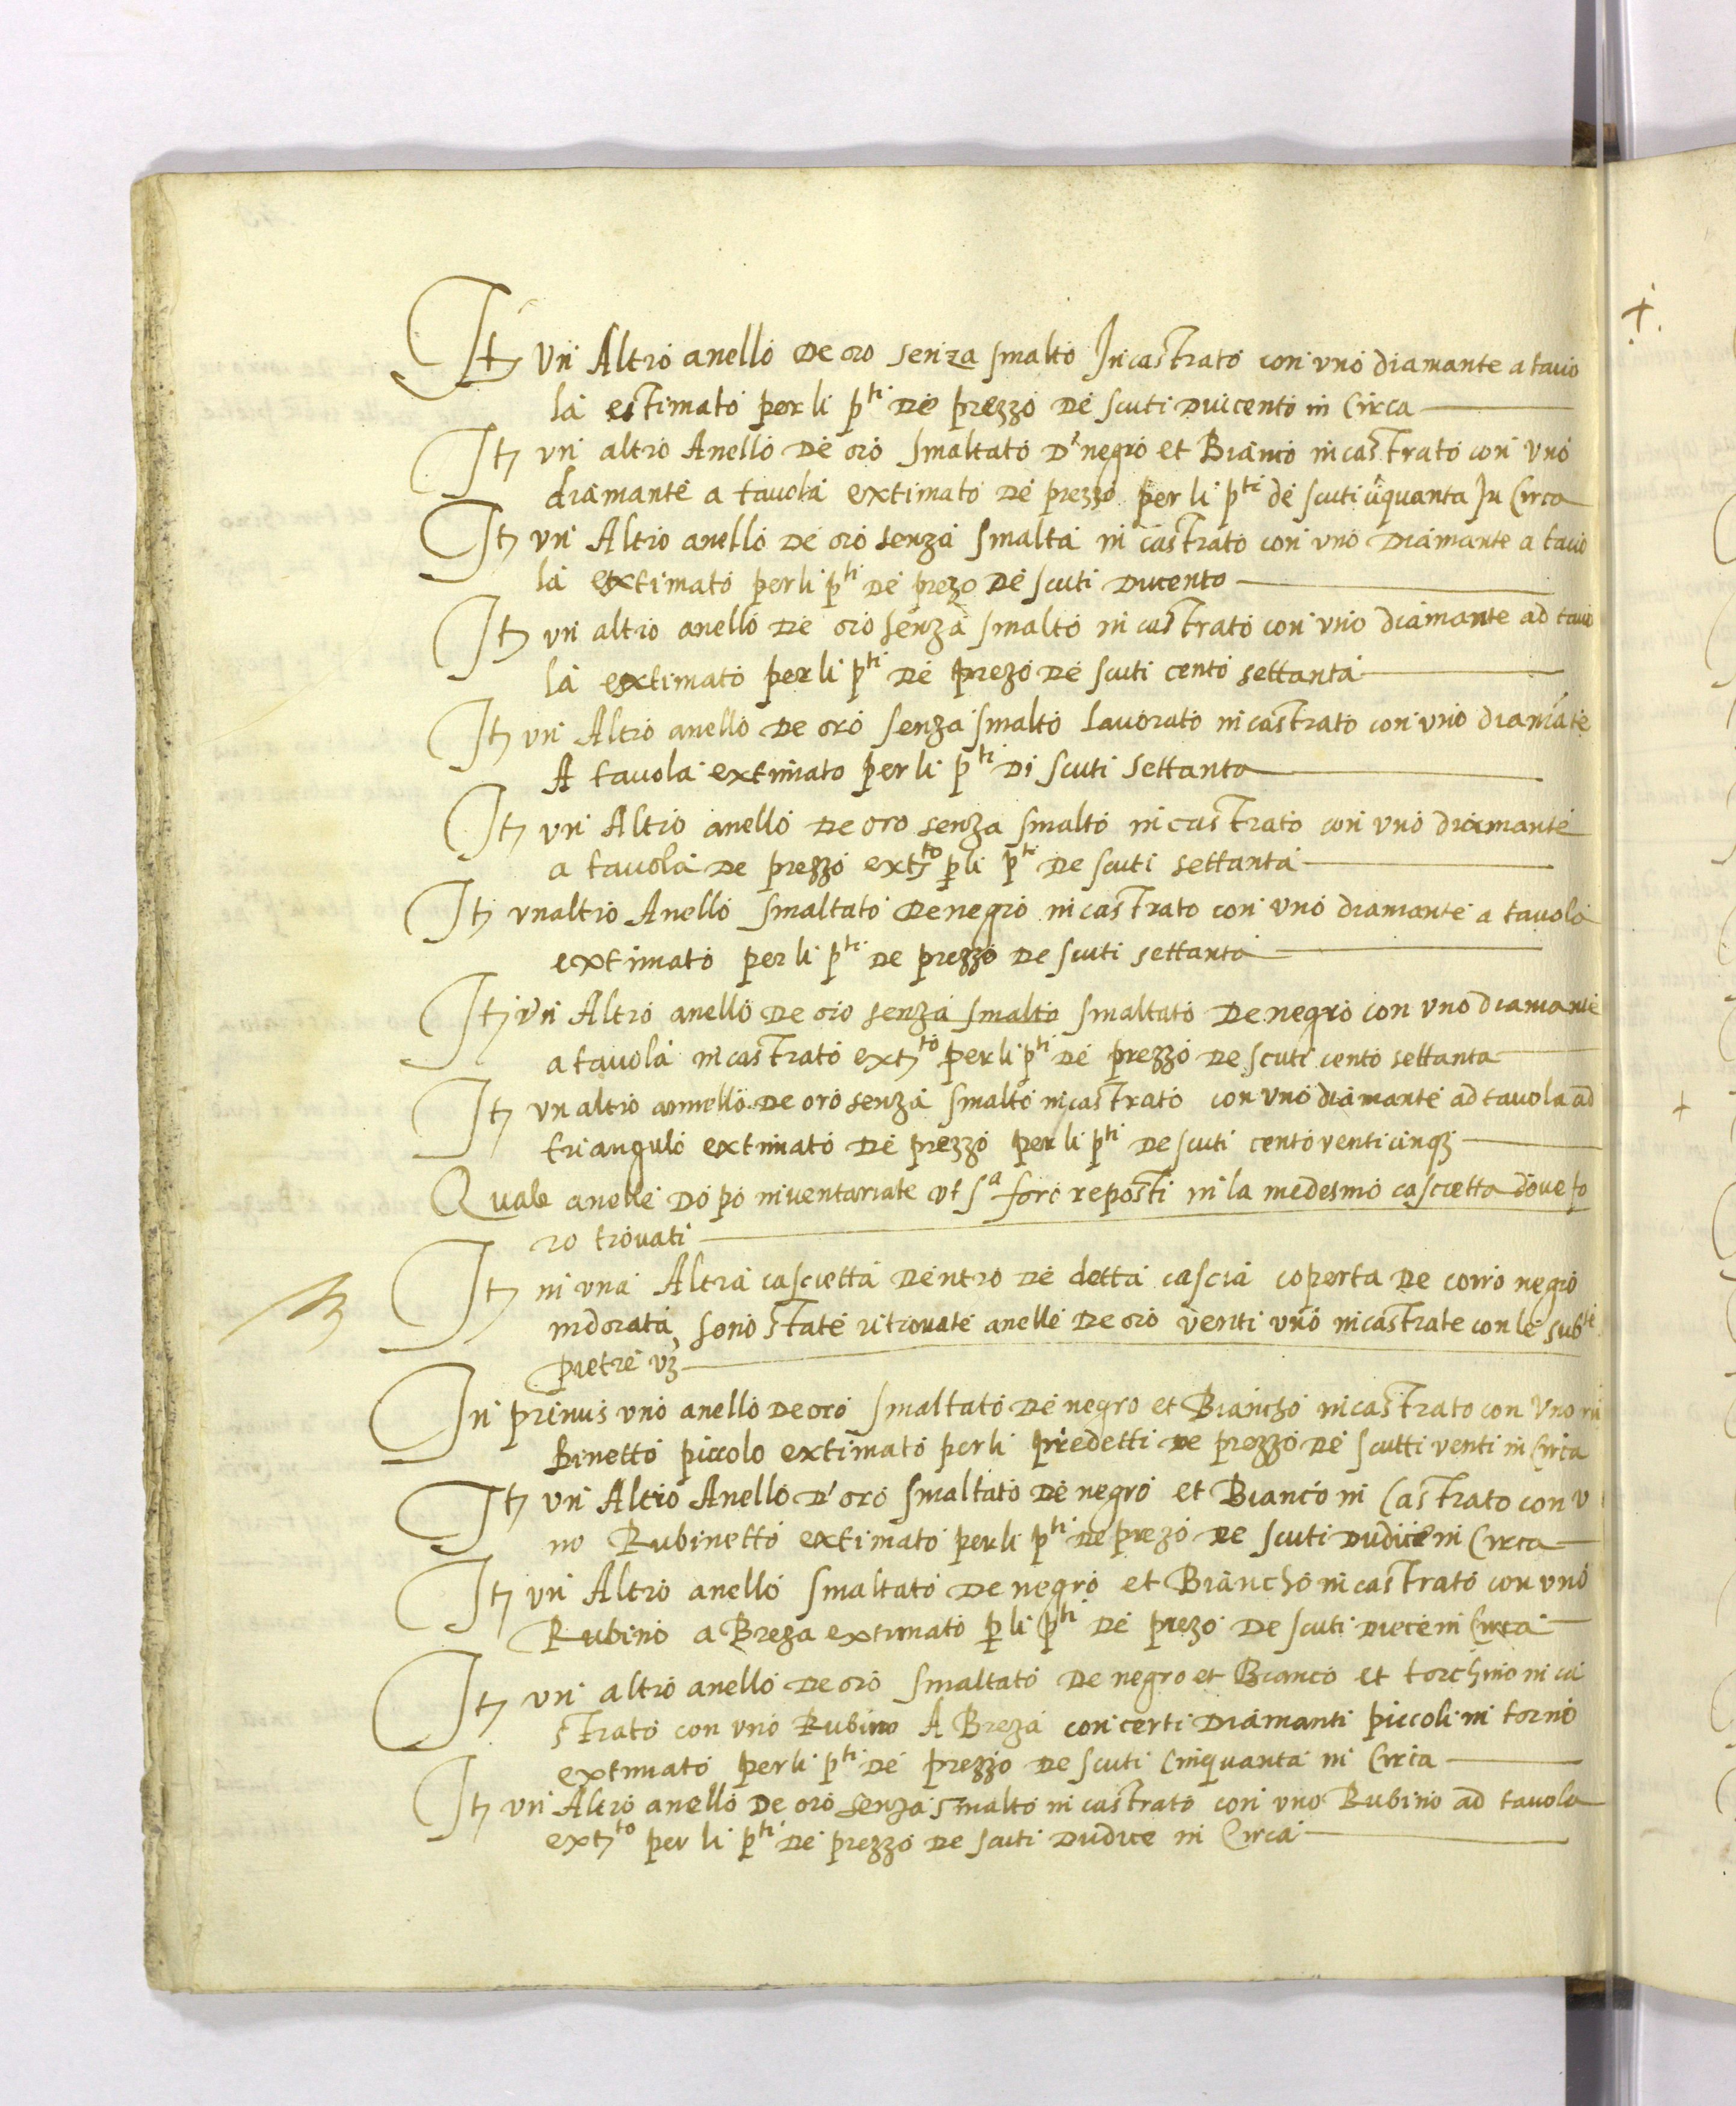 Itꝫ un Altro anello de oro senza smalto Incastrato con uno diamante a tauo
la estimato per li pti de prezzo de scuti duicento in Circa
Itꝫ un altro Anello de oro smaltato de negro et Bianco incastrato con uno
diamante a tauola extimato de prezzo per li pti de scuti ciquanta In Circa
Itꝫ un Altro anello de oro senza smalta in castrato con uno Diamante a tauo
la extimato per li pti de prezo de scuti Ducento
Itꝫ un altro anello de oro senza smalto in castrato con uno diamante ad tauo
la extimato per li pti de prezo de scuti cento settanta
Itꝫ un Altro anello de oro senza smalto lauorato incastrato con uno diamāte
A tauola extimato per li pti Di scuti settanta
Itꝫ un Altro anello de oro senza smalto incastrato con uno diamante
a tauola de prezzo extꝫto p li pti de scuti settanta
Itꝫ unaltro Anello smaltato de negro incastrato con uno diamante a tauola
extimato per li pti de prezzo de scuti settanta
Itꝫ un Altro anello de oro senza smalto smaltato de negro con uno diamante
a tauola incastrato extꝫto per li pti de prezzo de scuti cento settanta
Itꝫ un altro annello de oro senza smalto incastrato con uno diamante ad tauola ad
triangulo extimato de prezzo per li pti de scuti cento venticinqꝫ
Quale anelle dopo inuentariate ut sa foro reposti in la medesmo cascietta doue fo
ro trouati
Itꝫ in una Altra cascietta dentro de detta cascia coperta de corio negro
indorata, sono state ritrouate anelle de oro venti uno incastrate con le subte
pietre vꝫ
In primus uno anello de oro smaltato de negro et Biancho incastrato con uno ru
Binetto piccolo extimato per li predetti de prezzo de scutti venti in Circa
Itꝫ un Altro Anello d'oro smaltato de negro et Bianco in Castrato con u
no Rubinetto extimato per li pti de prezo de scuti dudice in Circa
Itꝫ un Altro anello smaltato de negro et Biancho incastrato con uno
Rubino a Breza extimato p li pti de prezo de scuti diece in Circa
Itꝫ un altro anello de oro smaltato de negro et Bianco et torchino in ca
strato con uno Rubino A Breza con certi Diamanti piccoli in torno
extimato per li pti de prezzo de scuti Cinquanta in Circa
Itꝫ un Altro anello de oro senza smalto in castrato con uno Rubino ad tauola
extꝫto per li pti de prezzo de scuti dudice in Circa